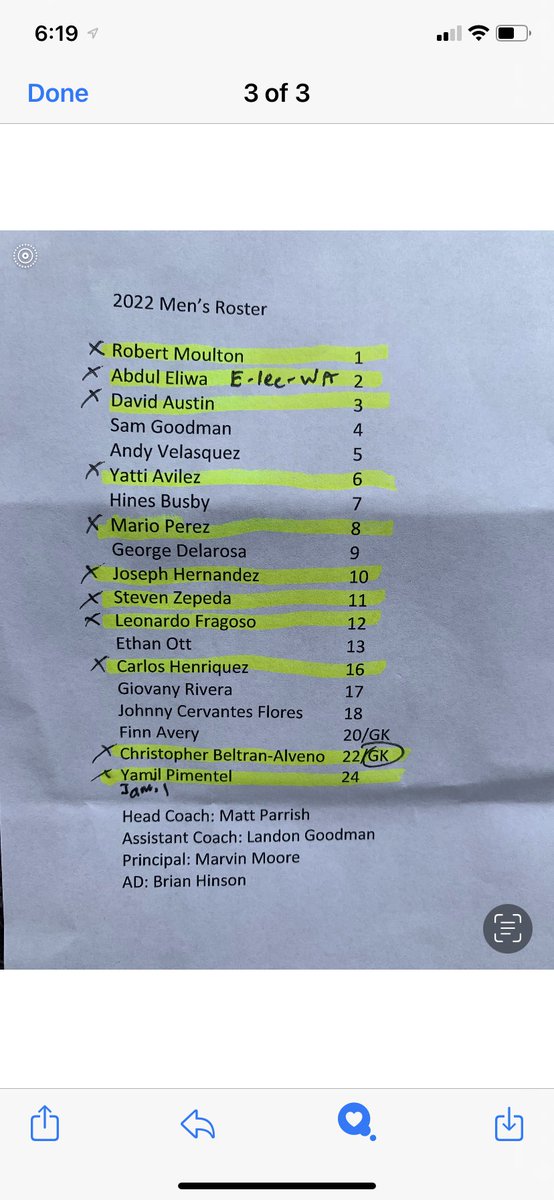 6:19
Done 3 of 3
2022 Men's Roster
X Robert Moulton 1
X Abdul Eliwa E-lee-WA 2
X David Austin 3
Sam Goodman 4
Andy Velasquez 5
X Yatti Avilez 6
Hines Busby 7
X Mario Perez 8
George Delarosa 9
X Joseph Hernandez 10
X Steven Zepeda 11
X Leonardo Fragoso 12
Ethan Ott 13
X Carlos Henriquez 16
Giovany Rivera 17
Johnny Cervantes Flores 18
Finn Avery 20/GK
X Christopher Beltran-Alveno 22/GK
X Yamil Pimentel 24
Jamil
Head Coach: Matt Parrish
Assistant Coach: Landon Goodman
Principal: Marvin Moore
AD: Brian Hinson